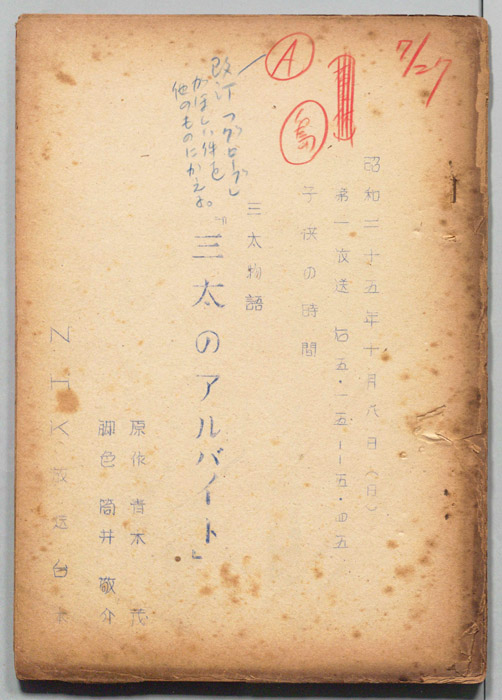 7/27
A
改訂 フグビーブし
がほしい件を
他のものにかえる。
昭和二十五年十月八日(日)
第一放送 后五・一五ー五・四五
子供の時間
三太物語
『三太のアルバイト』
原作 青木 茂
脚色 筒井 敬介
NHK放送台本